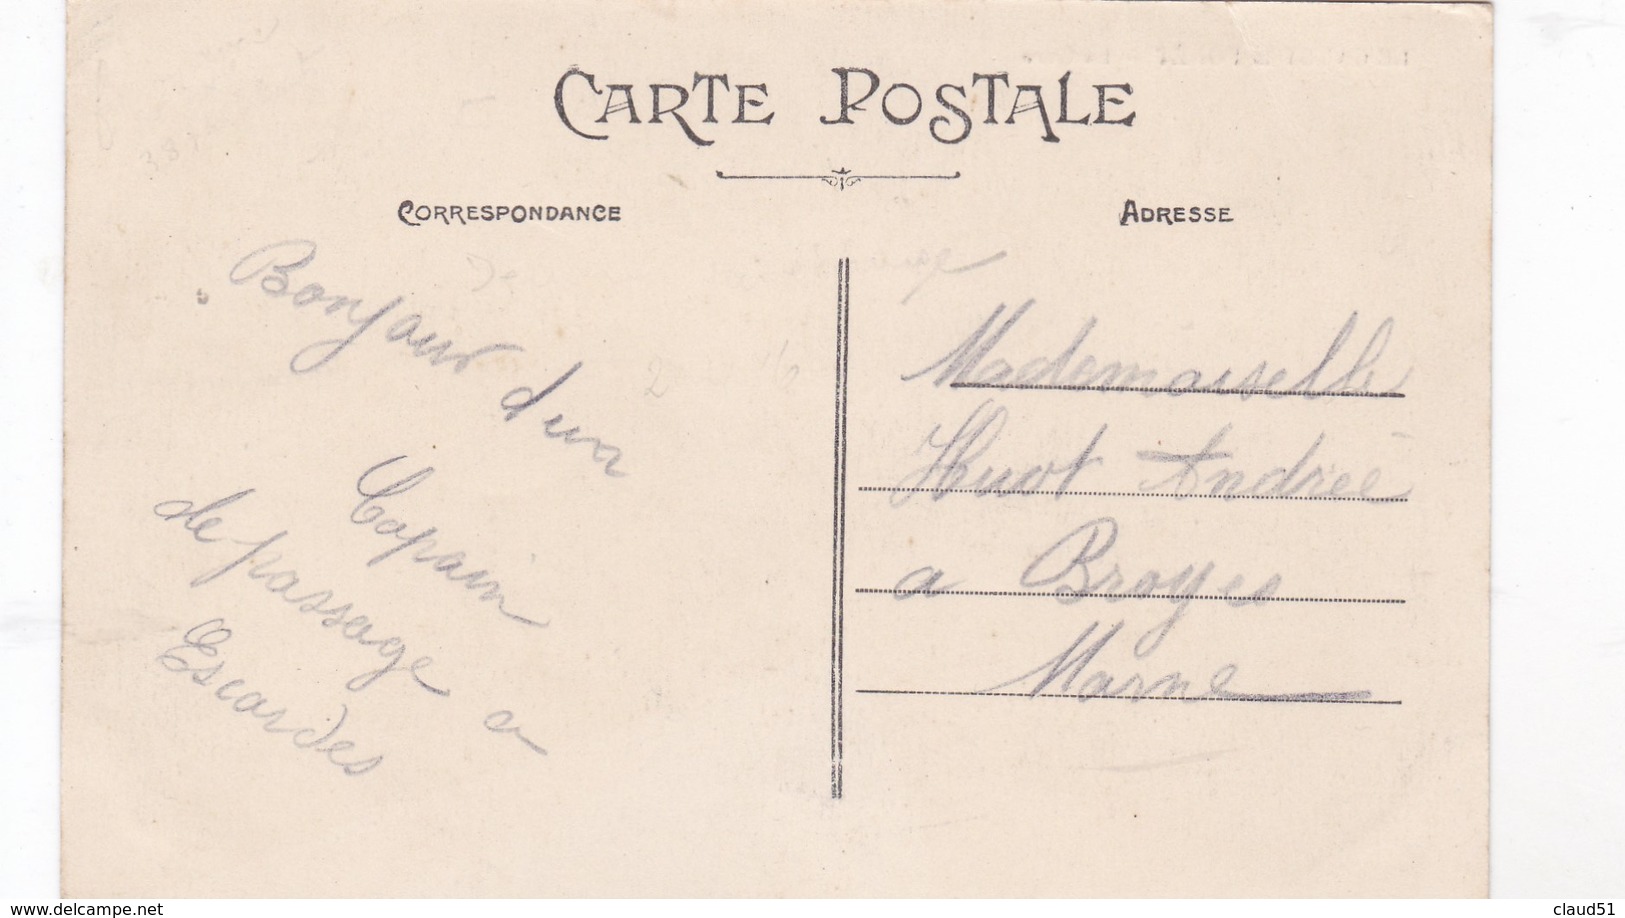 CARTE POSTALE
CORRESPONDANCE
ADRESSE
Bonjour d'un
Copain
de passage a
Escardes
Mademoiselle
Huot Andrée
a Broyes
Marne
www.delcampe.net
claud51